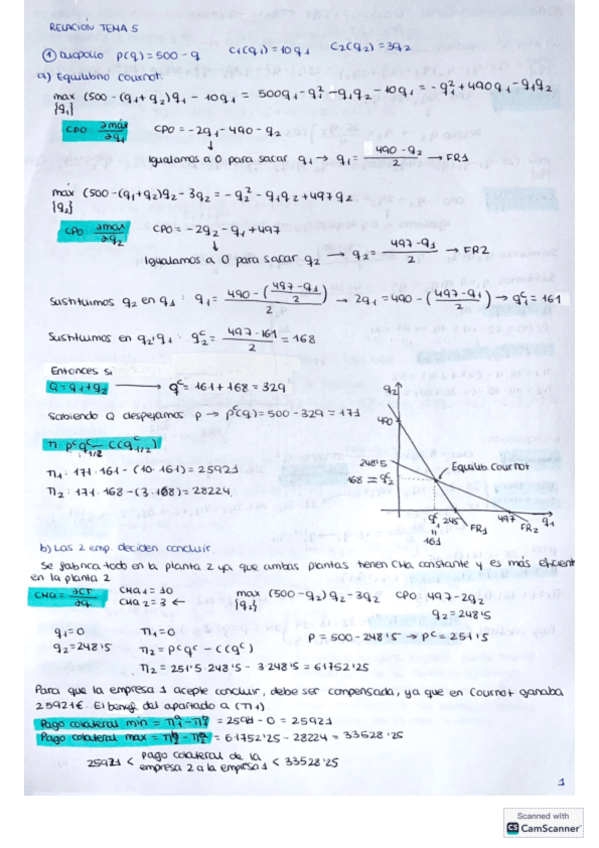 RELACIÓN TEMA 5
① Duopolio P(q) = 500 - q C1(q1) = 10q1 C2(q2) = 3q2
a) Equilibrio Cournot.
máx (500 - (q1 + q2)q1 - 10q1 = 500q1 - q1² - q1q2 - 10q1 = -q1² + 490q1 - q1q2
{q1}
CPO: ∂máx/∂q1 CPO = -2q1 - 490 - q2
↓
Igualamos a 0 para sacar q1 → q1 = (490 - q2)/2 → FR1
máx (500 - (q1 + q2)q2 - 3q2 = -q2² - q1q2 + 497q2
{q2}
CPO: ∂max/∂q2 CPO = -2q2 - q1 + 497
↓
Igualamos a 0 para sacar q2 → q2 = (497 - q1)/2 → FR2
Sustituimos q2 en q1: q1 = (490 - ((497 - q1)/2))/2 → 2q1 = 490 - ((497 - q1)/2) → q1ᶜ = 161
Sustituimos en q2 q1: q2ᶜ = (497 - 161)/2 = 168
Entonces si
Q = q1 + q2 → qᶜ = 161 + 168 = 329
Sabiendo Q despejamos p → pᶜ(q) = 500 - 329 = 171
π: pᶜqᶜ1/2 - C(qᶜ1/2)
π1: 171 · 161 - (10 · 161) = 25921
π2: 171 · 168 - (3 · 168) = 28224
q2
490
248'5
168 = q2ᶜ
Equilib Cournot
q1ᶜ 245 FR1 497 FR2 q1
"
161
b) Las 2 emp. deciden concluir.
Se fabrica todo en la planta 2 ya que ambas plantas tienen CMa constante y es más eficient
en la planta 2
CMa = ∂CT/∂q CMa1 = 10 máx (500 - q2)q2 - 3q2 CPO: 497 - 2q2
CMa2 = 3 ← {q1} q2 = 248'5
q1 = 0 π1 = 0 P = 500 - 248'5 → pᶜ = 251'5
q2 = 248'5 π2 = pᶜqᶜ - C(qᶜ)
π2 = 251'5 · 248'5 - 3 · 248'5 = 61752'25
Para que la empresa 1 acepte concluir, debe ser compensada, ya que en Cournot ganaba
25921€. El benef. del apartado a (π1)
Pago colateral min = = 25921 - 0 = 25921
Pago colateral max = = 61752'25 - 28224 = 33528'25
25921 < pago colateral de la empresa 2 a la empresa 1 < 33528'25
1
Scanned with
CS CamScanner